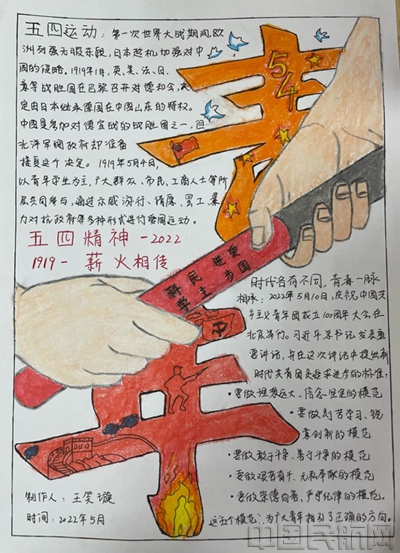 五四运动：第一次世界大战期间,欧
洲列强无暇东顾,日本趁机加强对中
国的侵略。1919年1月,英、美、法、日、
意等战胜国在巴黎召开对德和会,决
定由日本继承德国在中国山东的特权。
中国是参加对德宣战的战胜国之一,但
北洋军阀政府却准备
接受这个决定。1919年5月4日,
以青年学生为主,广大群众、市民、工商人士等阶
层共同参与,通过示威游行、请愿、罢工、暴
力对抗政府等多种形式进行爱国运动。
五四精神-2022
1919-薪火相传
青
54
民主
科学
进步
爱国
年
时代各有不同,青春一脉
相承：2022年5月10日,庆祝中国共
产主义青年团成立100周年大会在
北京举行。习近平总书记发表重
要讲话,
新时代共青团员追求进步的标准：
·要做理想远大、信念坚定的模范
·要做刻苦学习、锐
意创新的模范
·要做敢于斗争、善于斗争的模范
·要做艰苦奋斗、无私奉献的模范
·要做崇德向善、严守纪律的模范.
这五个模范,为广大青年指引了正确的方向。
制作人：王笑璇
时间：2022年5月
中国民航网